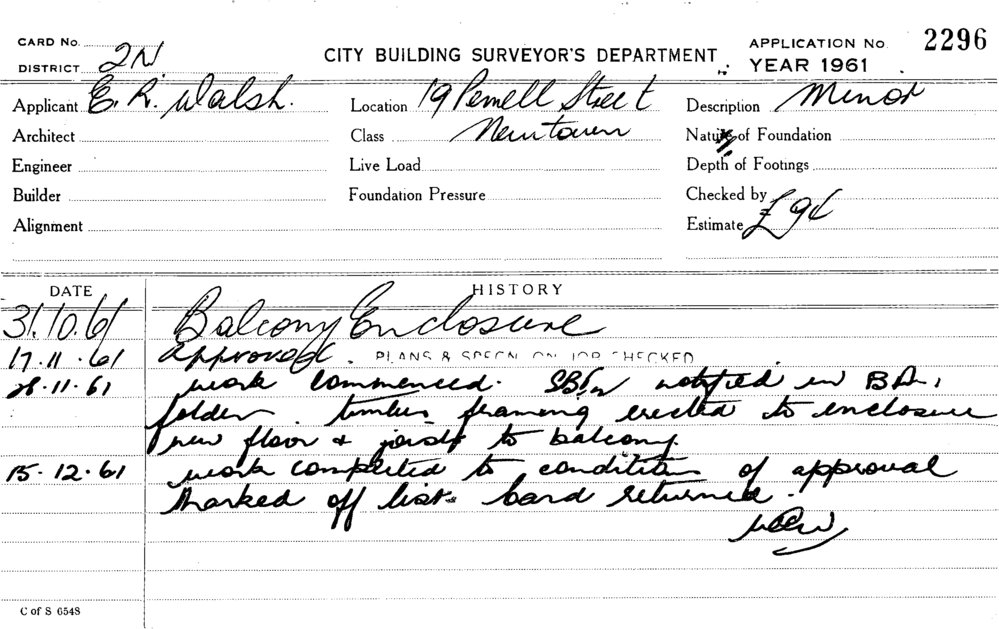 CARD No.
DISTRICT 2N
CITY BUILDING SURVEYOR'S DEPARTMENT
APPLICATION No. 2296
YEAR 1961
Applicant E. R. Walsh.
Location 19 Pemell Street
Description Minor
Architect
Class Newtown
Nature of Foundation
Engineer
Live Load
Depth of Footings
Builder
Foundation Pressure
Checked by
Alignment
Estimate
DATE
HISTORY
31.10.61 Balcony Enclosure
17.11.61 Approved. PLANS & SPECN ON JOB CHECKED
28.11.61 work commenced. notified in B.A.
folder timber framing erected to enclosure
new floor & joists to balcony.
15.12.61 work completed to condition of approval
Marked off list. Card returned.
C of S 6548